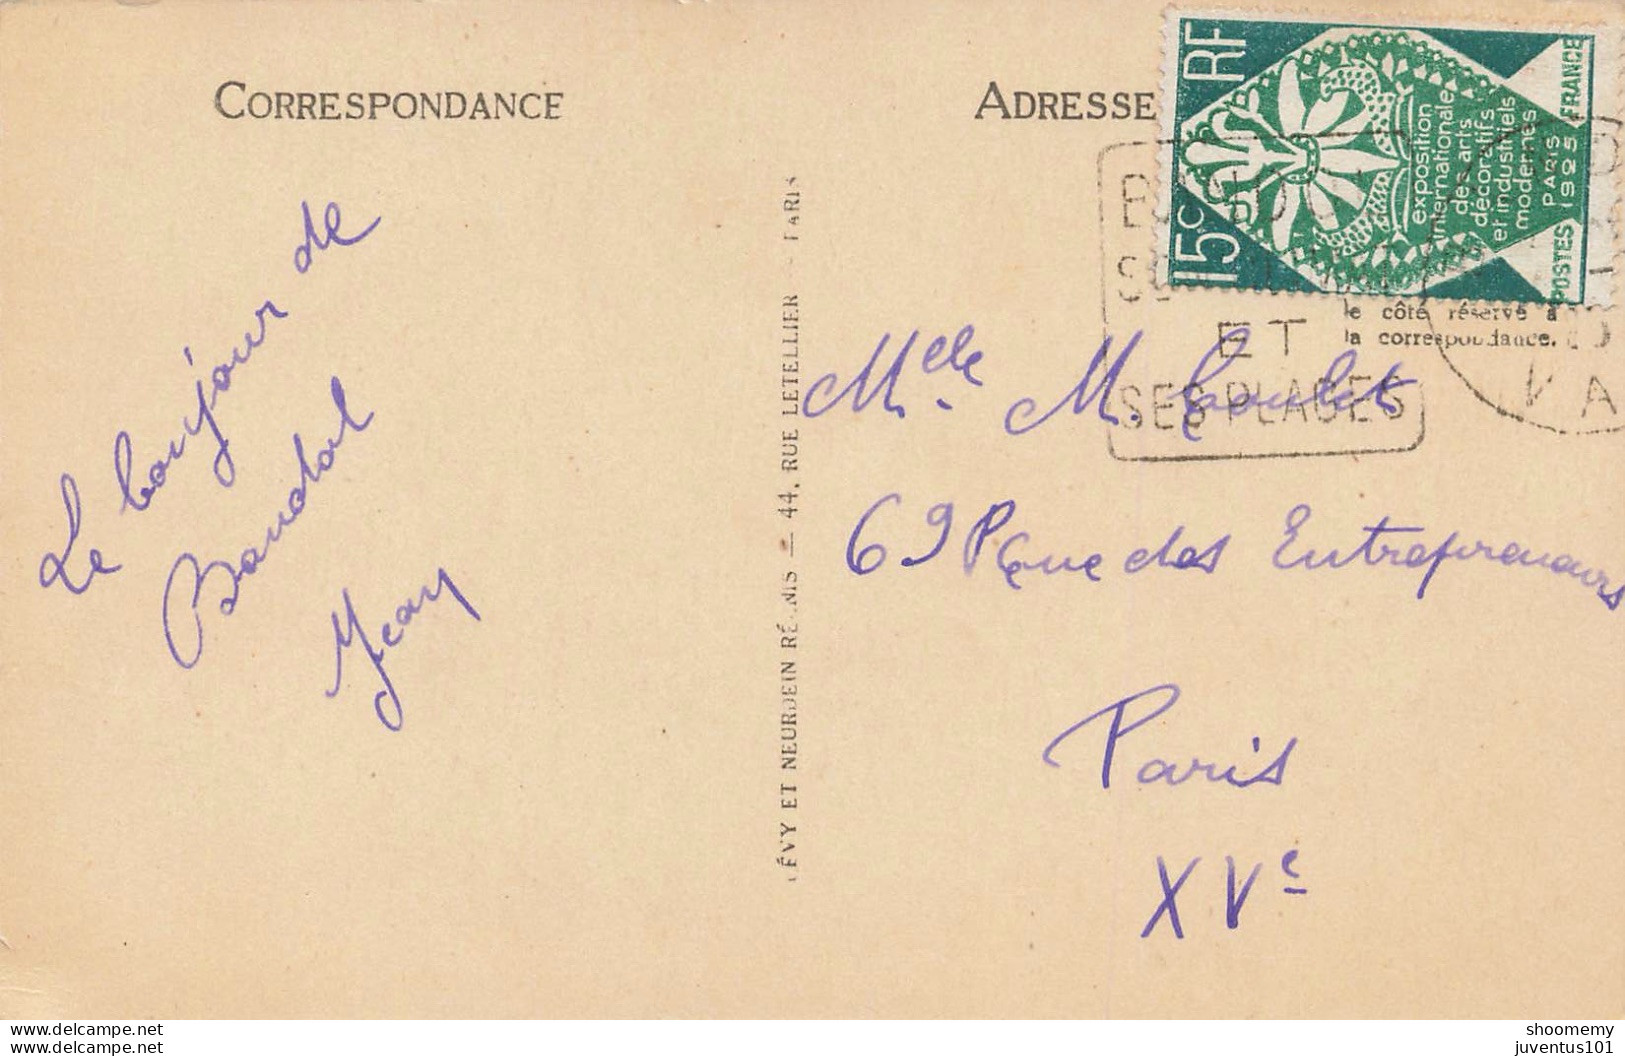 CORRESPONDANCE
Le bonjour de
Bandol
Jean
LÉVY ET NEURDEIN RÉUNIS — 44, RUE LETELLIER - PARIS
ADRESSE
RF
15c
exposition
internationale
des arts
décoratifs
et industriels
modernes
PARIS
1925
POSTES FRANCE
le côté réservé à
la correspondance.
ET
SES PLAGES
VA
Melle. M. Goulet
69 Rue des Entrepreneurs
Paris
XVe
www.delcampe.net
www.delcampe.net
shoomemy
juventus101